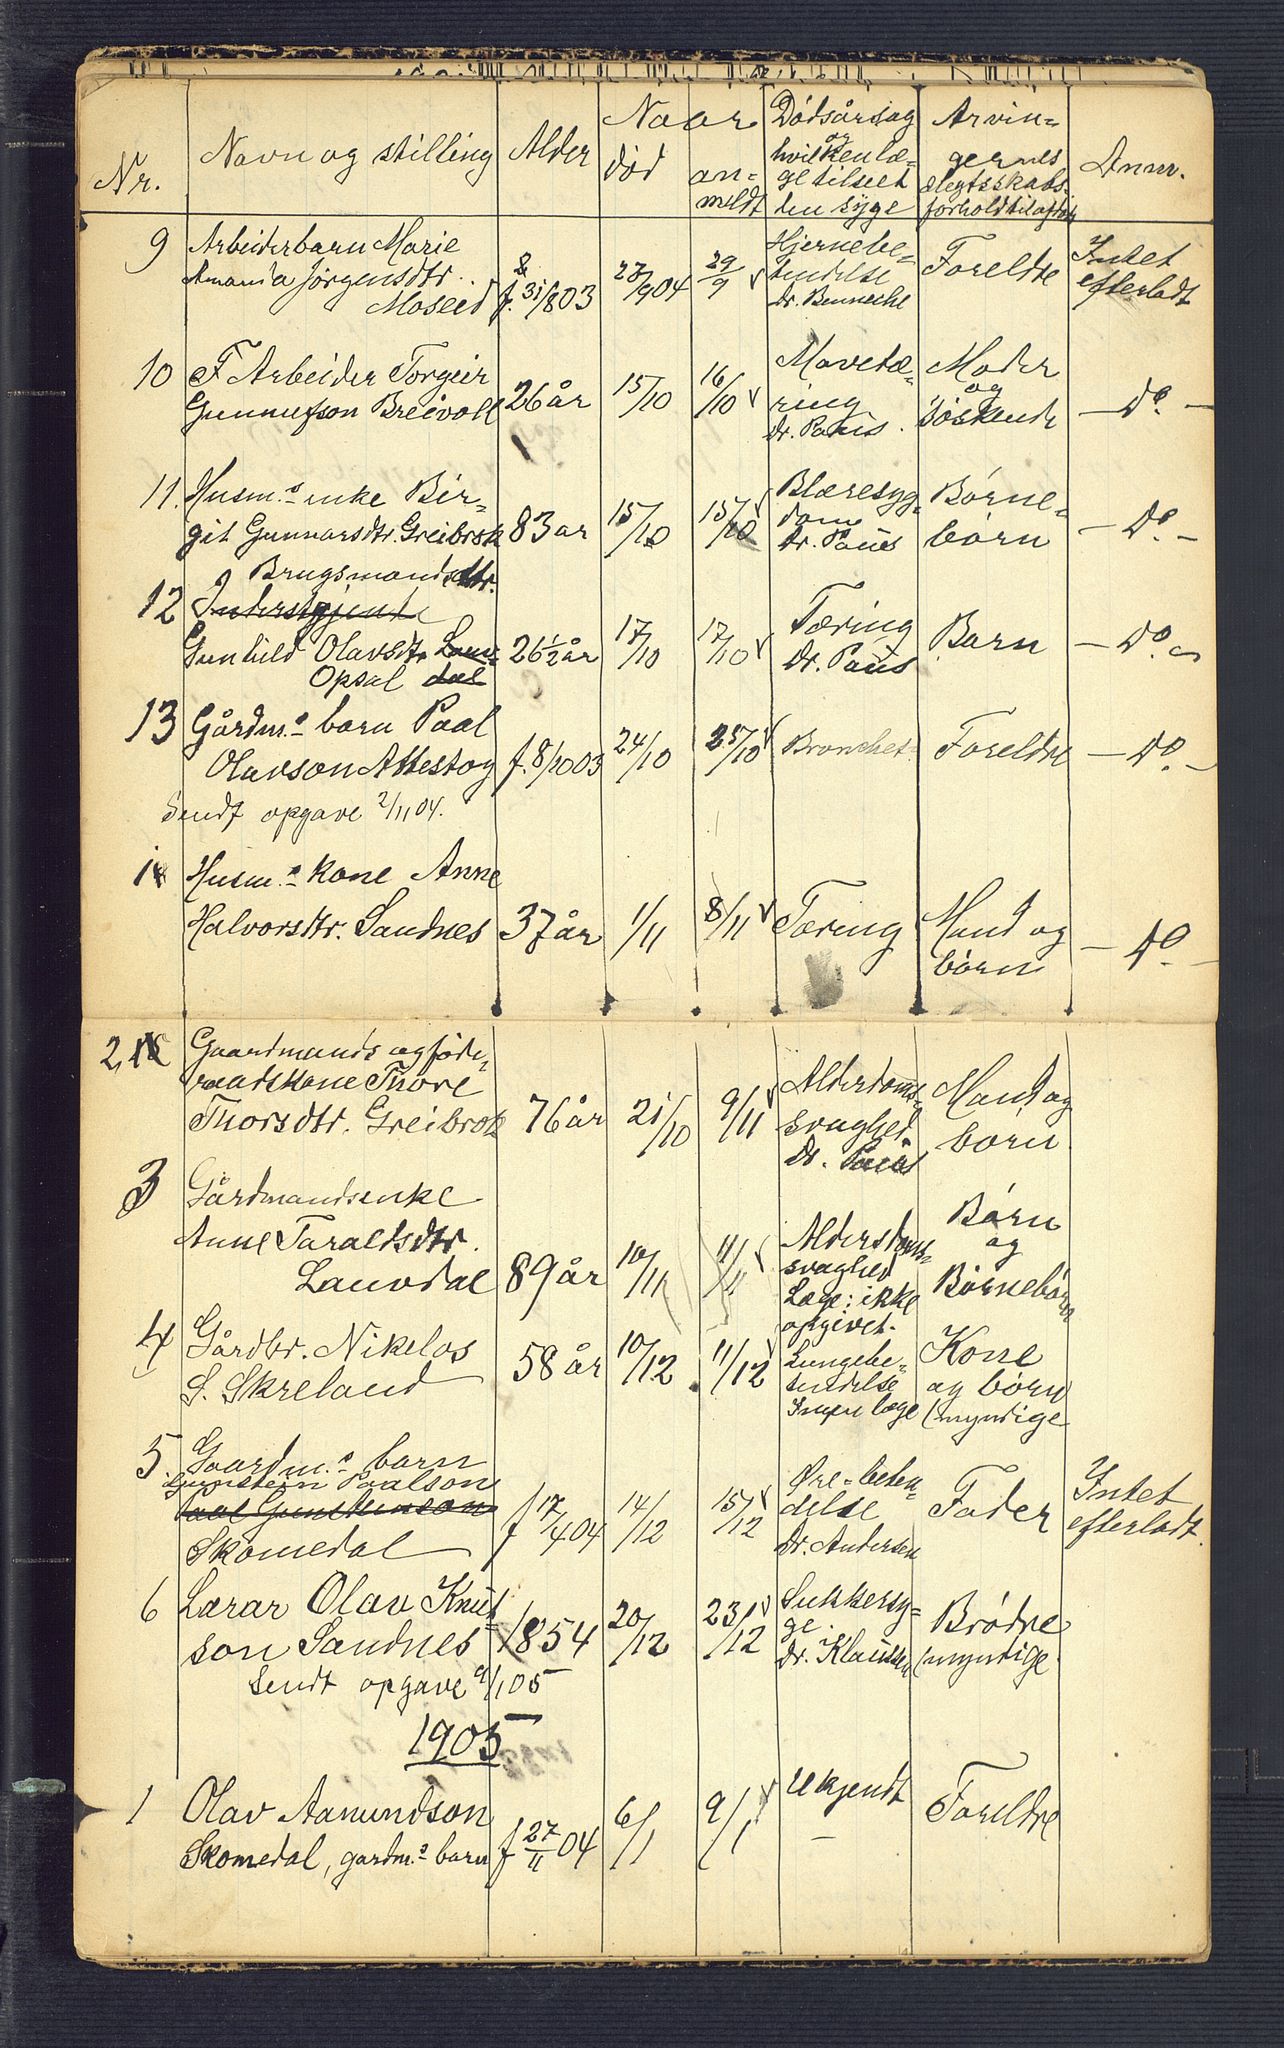 Nr.
Navn og stilling
Alder
Naar
død
an=
meldt
Dødsårsag
og
hvilken læ=
ge tilseet
den syge
Arvin=
gernes
slegtskabs.
forhold til afdøde
Anm.
9 Arbeiderbarn Marie
Amanda Jørgensdtr.
Moseid f. 31/8 03 27/9 04 29/9 Hjernebe=
tendelse
Dr. Benneche Foreldre Intet
efterladt
10 F Arbeider Torgeir
Gunnufson Breivoll 26 år 15/10 16/10 Mavetæ=
ring
Dr. Paus. Moder
og
søskende - Do. -
11. Husm.s enke Bir=
git Gunnarsdtr. Greibrok 83 ar 15/10 15/10 Blæresyg=
dom
Dr. Paus Børne=
børn - Do. -
Brugsmandsdtr.
12 Inderstgjente
Gunhild Olavsdtr. Lauv=
Opsal dal 26 1/2 år 17/10 17/10 Tæring
Dr. Paus Barn - Do. -
13 Gårdm.s barn Paal
Olavson Attestog f. 8/10 03 24/10 25/10 Bronchet Foreldre - Do. -
Sendt opgave 2/11 04.
1 Husm.s kone Anne
Halvorsdtr. Sandnes 37 år 1/11 8/11 Tæring Mand og
børn - Do. -
2 Gaardmands og føde=
raadskone Thore
Thorsdtr. Greibrok 76 år 21/10 9/11 Alderdoms=
svaghed.
Dr. Paus Mand og
born
3 Gårdmandsenke
Anne Taraldsdtr.
Lauvdal 89 år 10/11 11/11 Alderdoms=
svaghed
Læge: ikke
opgivet. Børn
og
Børnebørn
4 Gårdbr. Nikolas
S. Skreland 58 år 10/12 11/12 Lungebe=
tendelse
Ingen læge Kone
og børn
(myndige
5. Gaardm.s barn
Gunstein Paalson
Paal Gunsteinson
Skomedal f 17/4 04 14/12 15/12 Øre-beten=
delse
Dr. Andersen Fader Intet
efterladt.
6 Lærar Olav Knut=
son Sandnes 1854 20/12 23/12 Sukkersy=
ge.
Dr. Klausen Brødre
(myndige
Sendt opgave 9/1 05
1905
1 Olav Aanundson
Skomedal, gardm.s barn f 27/11 04 6/1 9/1 Ukjendt
- Foreldre